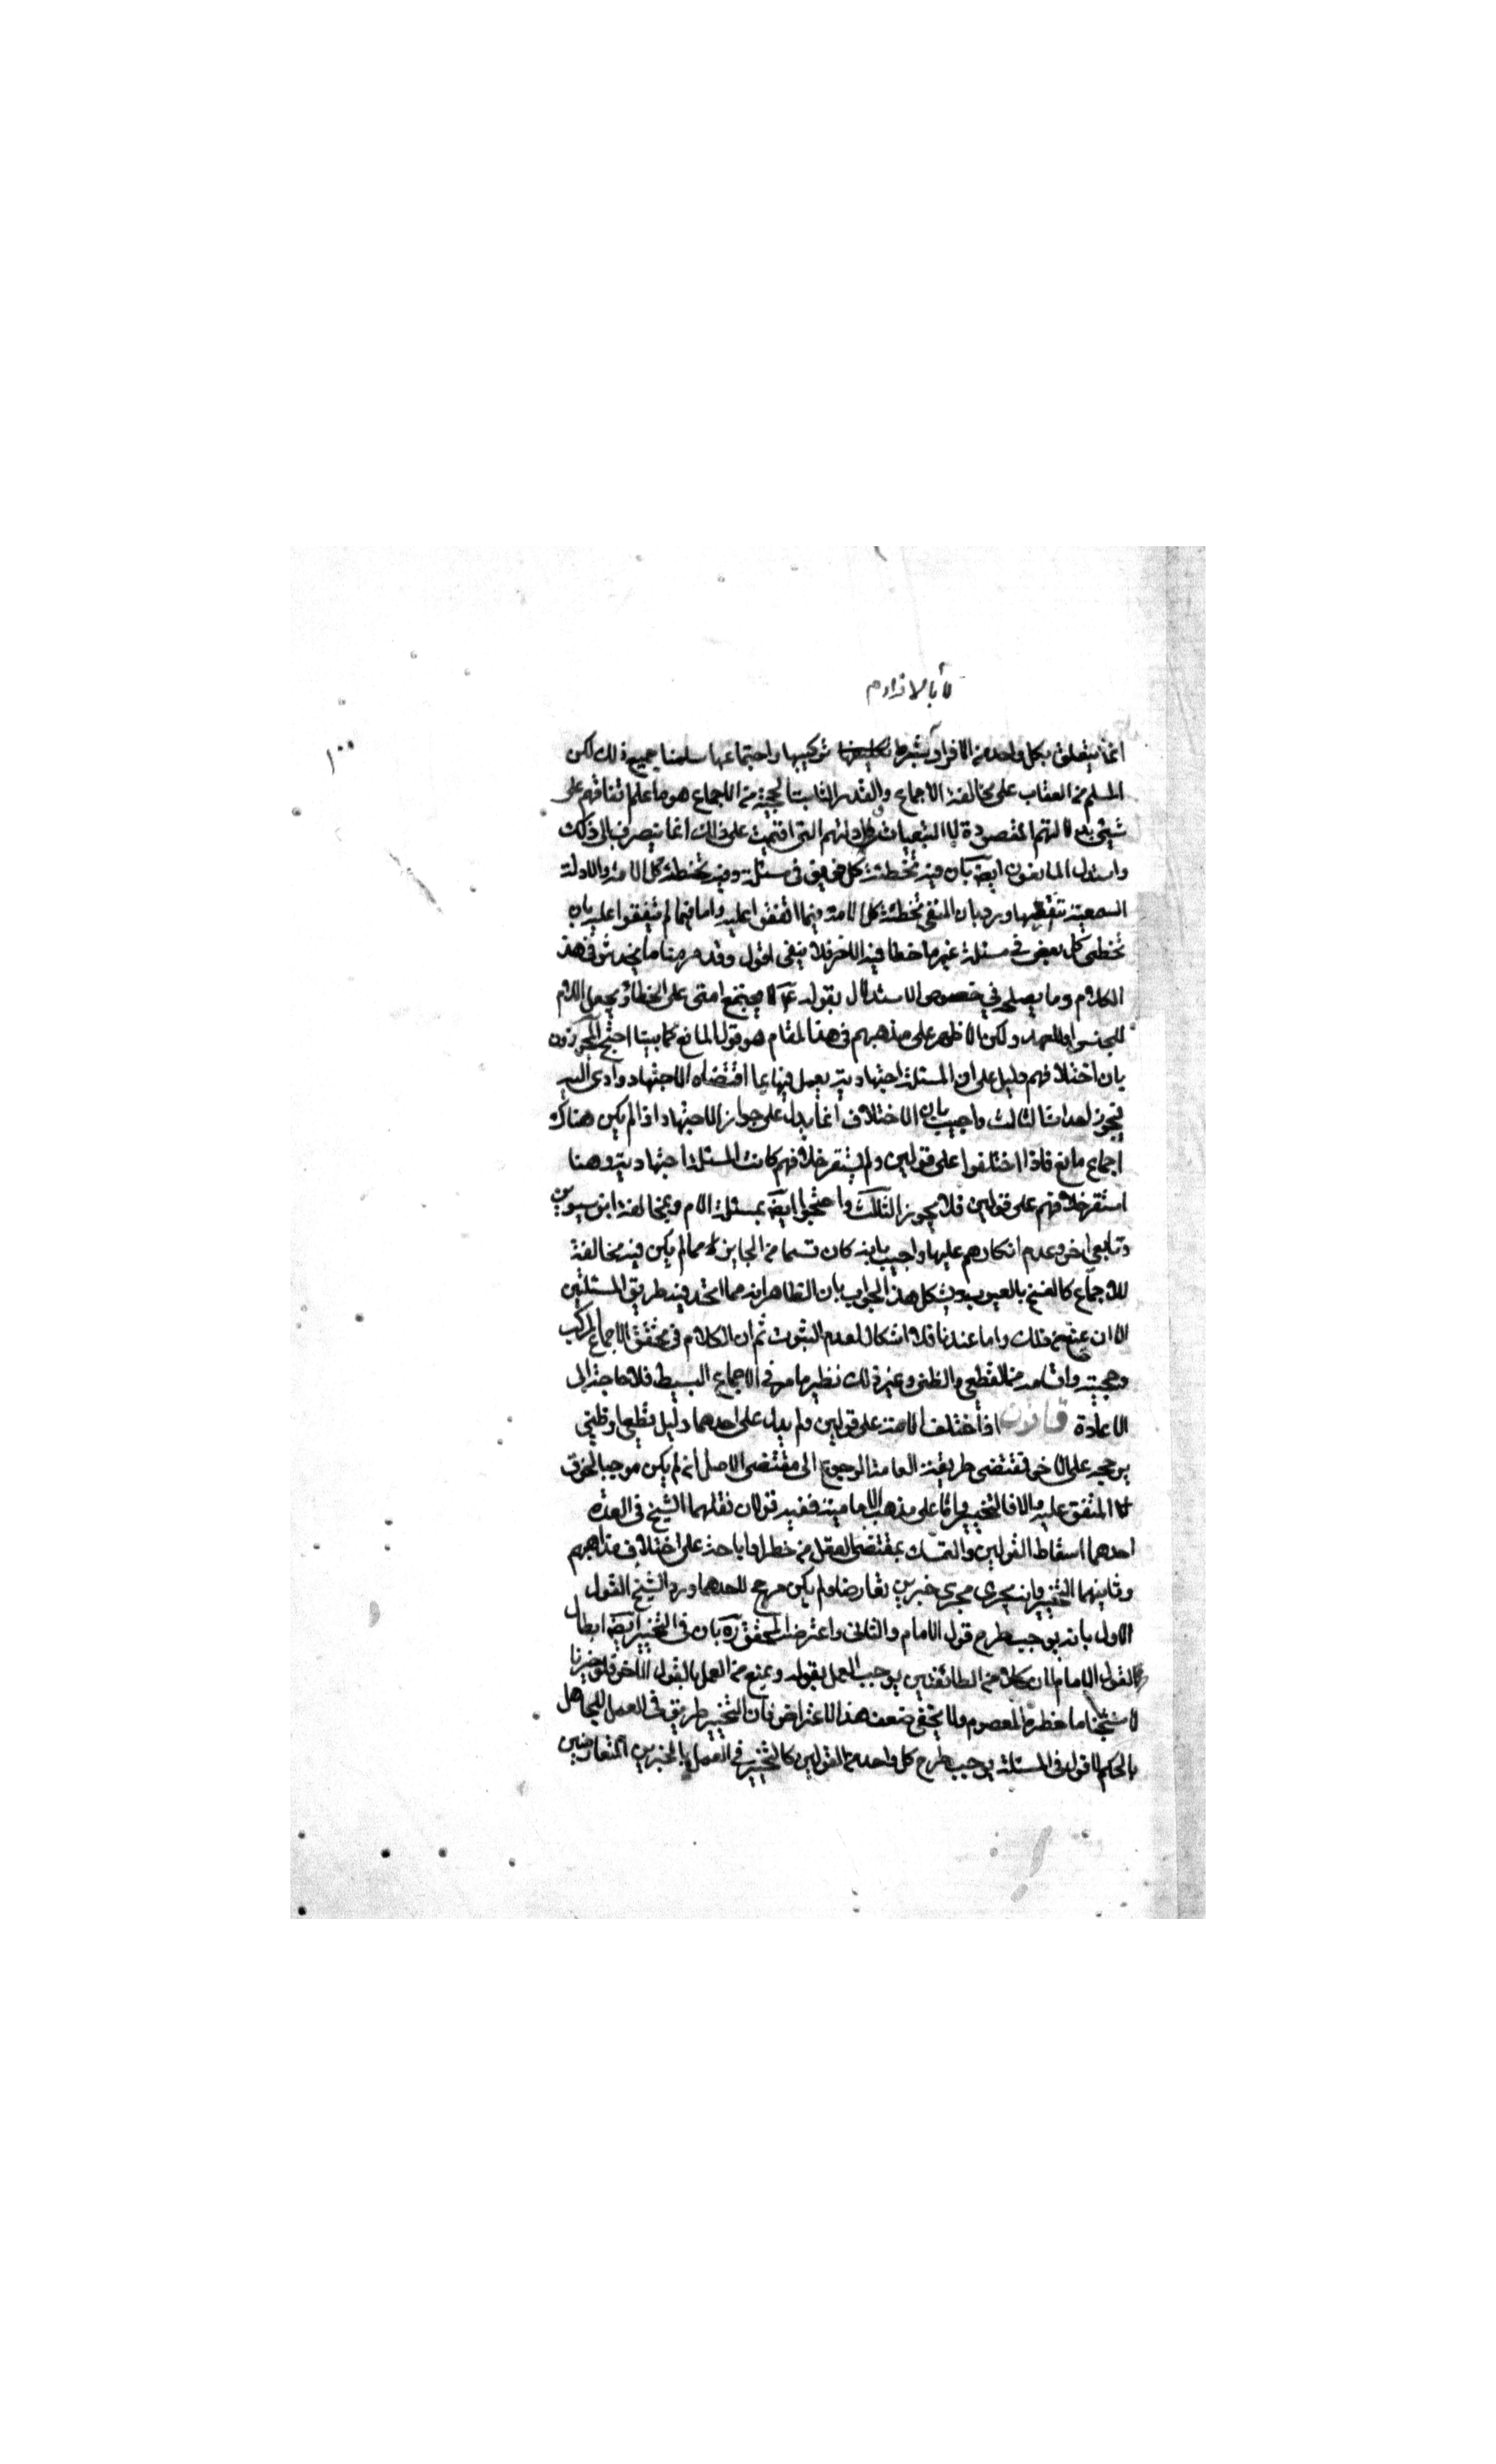 لا بالافراد م
١٠٠
انما يتعلق بكل واحد من الافراد بشرط تركيبها واجتماعها سلمنا جميع ذلك لكن
المسلم من العقاب على مخالفة الاجماع والقدر الثابت الحجية من الاجماع هو ما علم اتفاقهم على
شيئ بدلالتهم المقصودة لا التبعيات وظ ادلتهم التى اقتميت على ذلك انما ينصرف بالى ذلك
واستدل المانعون ايضا بان فيه تخطئة كل فريق فى مسئلة وفيه تخطئة كل الامة والادلة
السمعية تنفيها ورد بان المنفى تخطئة كل الامة فيما اتفقوا عليه واما فيما لم يتفقوا عليه بان
تخطى كل بعض فى مسئلة غير ما خطا فيه الاخر فلا ينفى اقول وقد مر منا ما يخدش فى هذا
الكلام وما يصلحه في خصوص الاستدلال بقوله ع لا يجتمع امتى على الخطا وبجعل اللام
للجنس او للعهد ولكن الاظهر على مذهبهم فى هذا المقام هو قول المانع كما بينا احتج المجوزون
بان اختلافهم دليل على ان المسئلة اجتهادية يعمل فيها بما اقتضاه الاجتهاد وادى اليه
فيجوز احداث الثالث واجيب بان الاختلاف انما يدل على جواز الاجتهاد اذا لم يكن هناك
اجماع مانع فاذا اختلفوا على قولين ولم يستقر خلافهم كانت المسئلة اجتهادية وهنا
استقر خلافهم على قولين فلا يجوز الثالث واحتجوا ايضا بمسئلة الام وبمخالفة ابن سيرين
وتابعى اخر وعدم انكارهم عليها واجيب بانه كان قسما من الجايز مما لم يكن فيه مخالفة
للاجماع كالفسخ بالعيوب ويشكل هذا الجواب بان الظاهر انه مما اتحد فيه طريق المسئلتين
الا ان يمنع ذلك واما عندنا فلا اشكال لعدم الثبوت ثم ان الكلام فى تحقق الاجماع المركب
وحجيته واقسامه من القطعي والظنى وغير ذلك نظير ما مر فى الاجماع البسيط فلا حاجة الى
الاعادة قانون اذا اختلف الامة على قولين ولم يدل على احدهما دليل قطعى او ظنى
يرجحه على الاخر فمقتضى طريقة العامة الرجوع الى مقتضى الاصل ان لم يكن موجبا لخرق
المتفق عليه والا فالتخيير واما على مذهب الامامية ففيه قولان نقلهما الشيخ فى العده
احدهما اسقاط القولين والتمسك بمقتضى العقل من حظر او اباحة على اختلاف مذاهبهم
وثانيهما التخيير وانه يجرى مجرى خبرين تعارضا ولم يكن مرجح لاحدهما ورد الشيخ القول
الاول بانه يوجب طرح قول الامام والثانى واعترض المحقق ره بان فى التخيير ايضا ابطال
لقول الامام لان كلا من الطائفتين يوجب العمل بقوله ويمنع من العمل بالقول الاخر فلو خيرنا
لاستبحنا ما حظره المعصوم ولا يخفى ضعف هذا الاعتراض فان التخيير طريق فى العمل للجاهل
بالحكم لا قول فى المسئلة يوجب طرح كل واحد من القولين كالتخيير في العمل بالخبرين المتعارضين